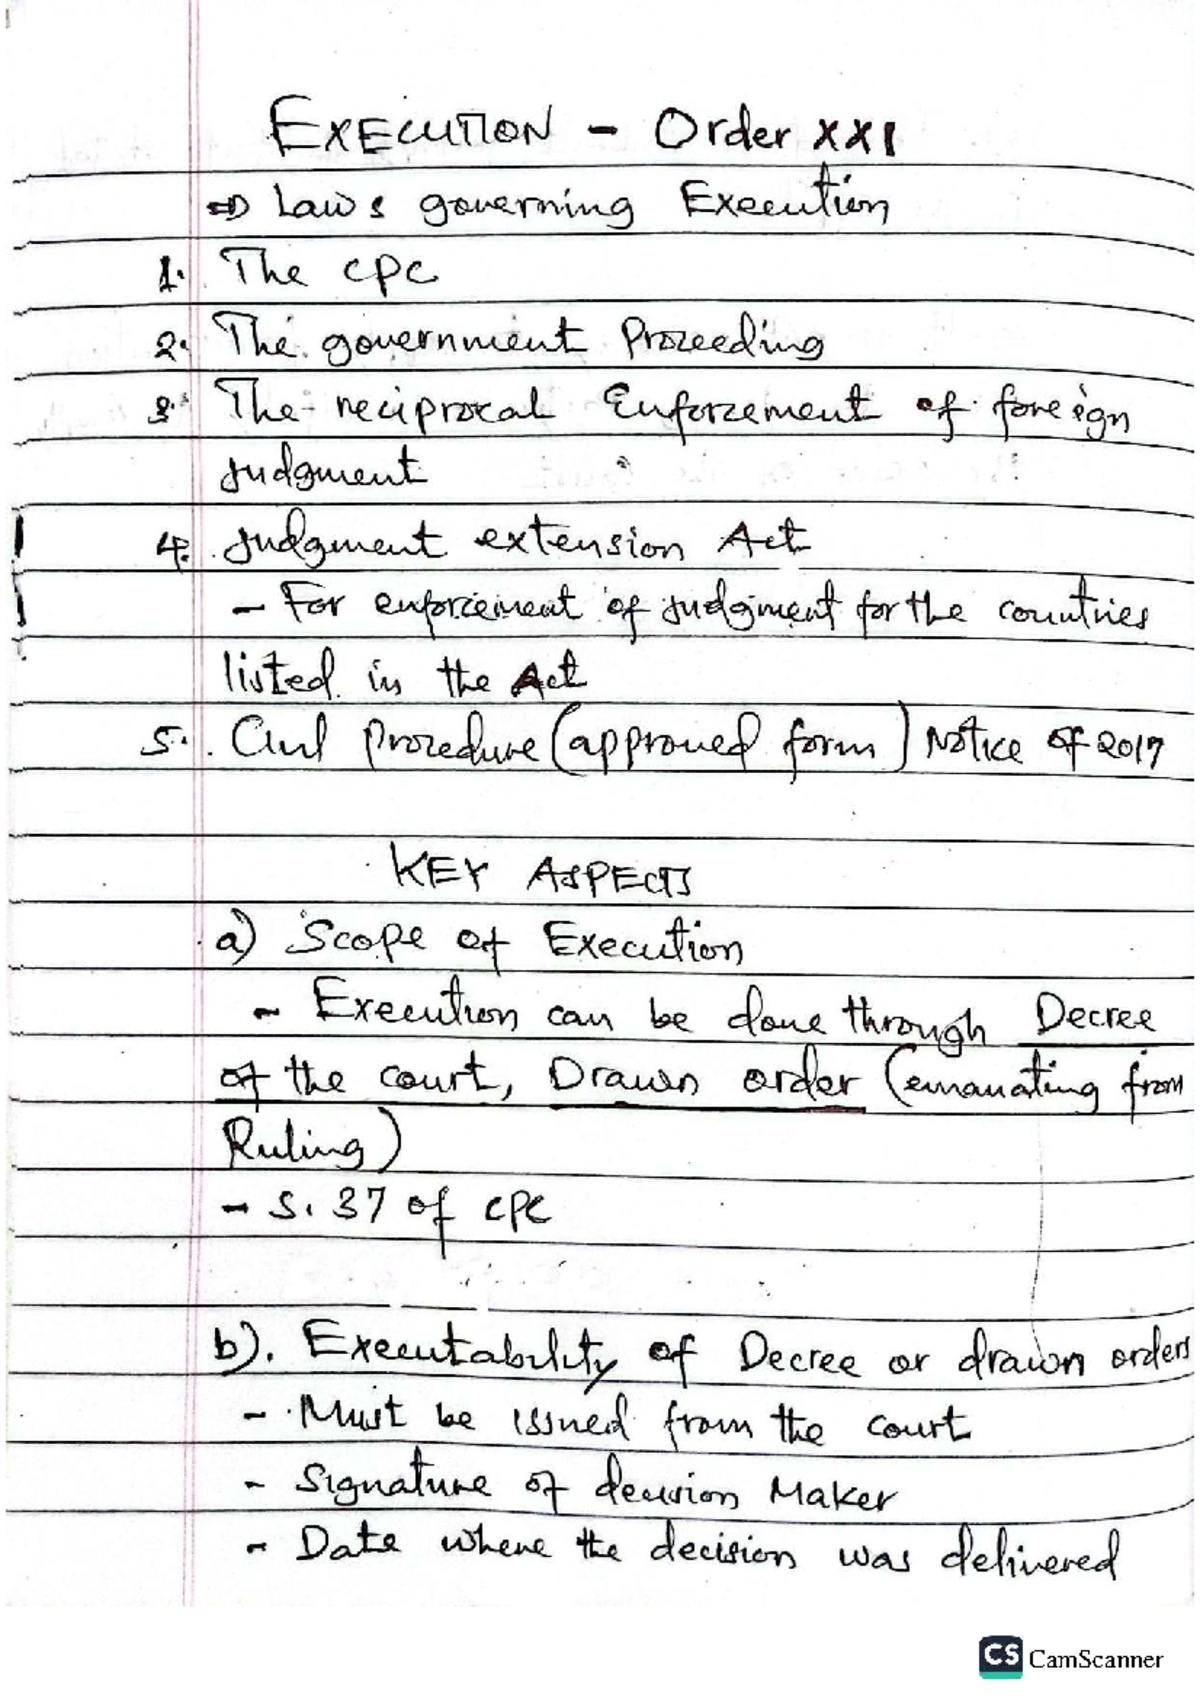 EXECUTION - Order XXI
⇒ Laws governing Execution
1. The CPC
2. The government Proceeding
3. The reciprocal Enforcement of foreign
Judgment
4. Judgment extension Act
- For enforcement of judgment for the countries
listed in the Act
5. Civil Procedure (approved form) Notice of 2017
KEY ASPECTS
a) Scope of Execution
- Execution can be done through Decree
of the court, Drawn order (emanating from
Ruling)
- S. 37 of CPC
b). Executability of Decree or drawn orders
- Must be issued from the court
- Signature of decision Maker
- Date where the decision was delivered
CS CamScanner